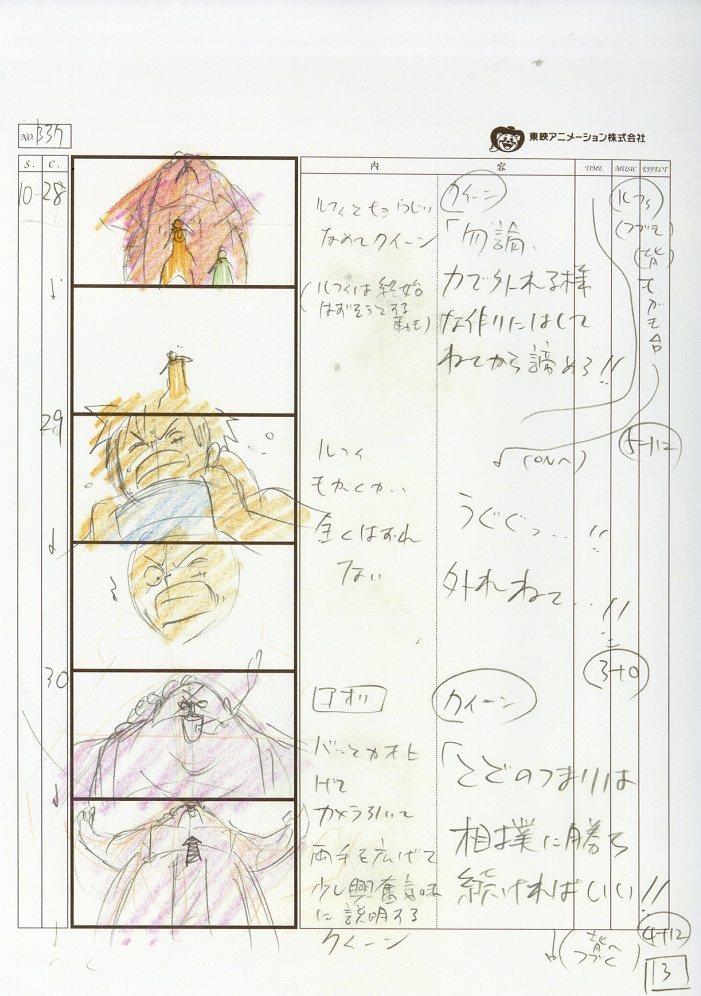 NO. B37
東映アニメーション株式会社
S. C. 内 容 TIME MUSIC EFFECT
10-28
ルフィと
なめてクイーン
(ルフィは終始
はずそうとする
動き)
クイーン
「勿論、
力で外れる様
な作りにはして
ねてから諦めろ!!
ルフィ
(つづき)
(背)
もがき合
5+12
(ONへ)
29
ルフィ
もがくが..
全くはずれ
ない
うぐぐっ...!!
外れねて...!!
3+0
30
アオリ
クイーン
バッとカオ上
げて
カメラ引いて
両手を広げて
少し興奮気味
に説明する
クイーン
「とどのつまりは
相撲に勝ち
続ければいい!!
4+12
(背へ
つづく)
13